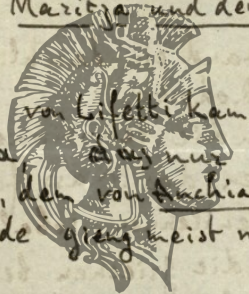 Maritza und de
von Lifetti kam
das nur
dem von Anchia
de gieng meist n